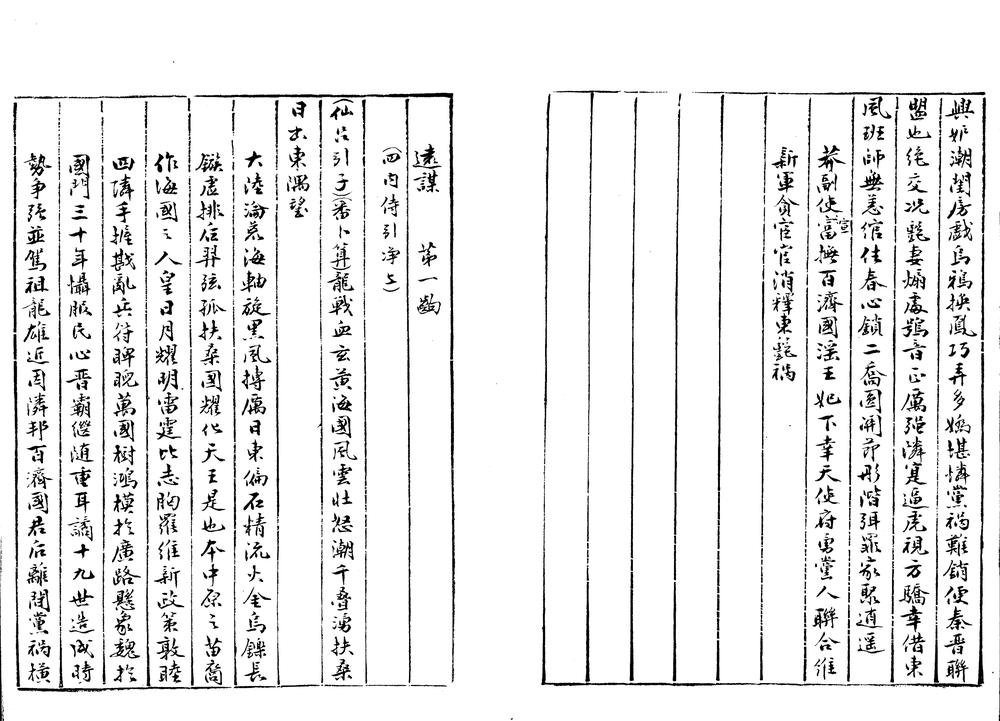 興妒潮閨房戲烏鴉換鳳巧弄多嬌堪憐黨禍難銷使秦晉聯
盟也絕交况豔妻煽處鴞音正厲強隣寔逼虎視方驕幸借東
風班師無恙綰住春心鎖二喬園開節彤階弭罪家聚逍遥
莽副使宣富撫百濟國淫王妃下幸天使府勇黨人聯合維
新軍貪宦官消釋東豔禍
遠謀　第一齣
（四内侍引净上）
（仙呂引子）（番卜算）龍戰血玄黄海國風雲壯怒潮千疊湧扶桑
日出東隅望
大陸淪荒海軸旋黑風摶厲日東偏石精流火金烏鑠長
鏃虛排后羿弦孤扶桑國耀仁天王是也本中原之苗裔
作海國之人皇日月耀明雷霆比志胸羅維新政策敦睦
四隣手握戡亂兵符睥睨萬國樹鴻模於廣路懸象魏於
國門三十年懾服民心晋霸繼随重耳譎十九世造成時
勢爭强並駕祖龍雄近因隣邦百濟國君后離間黨禍橫